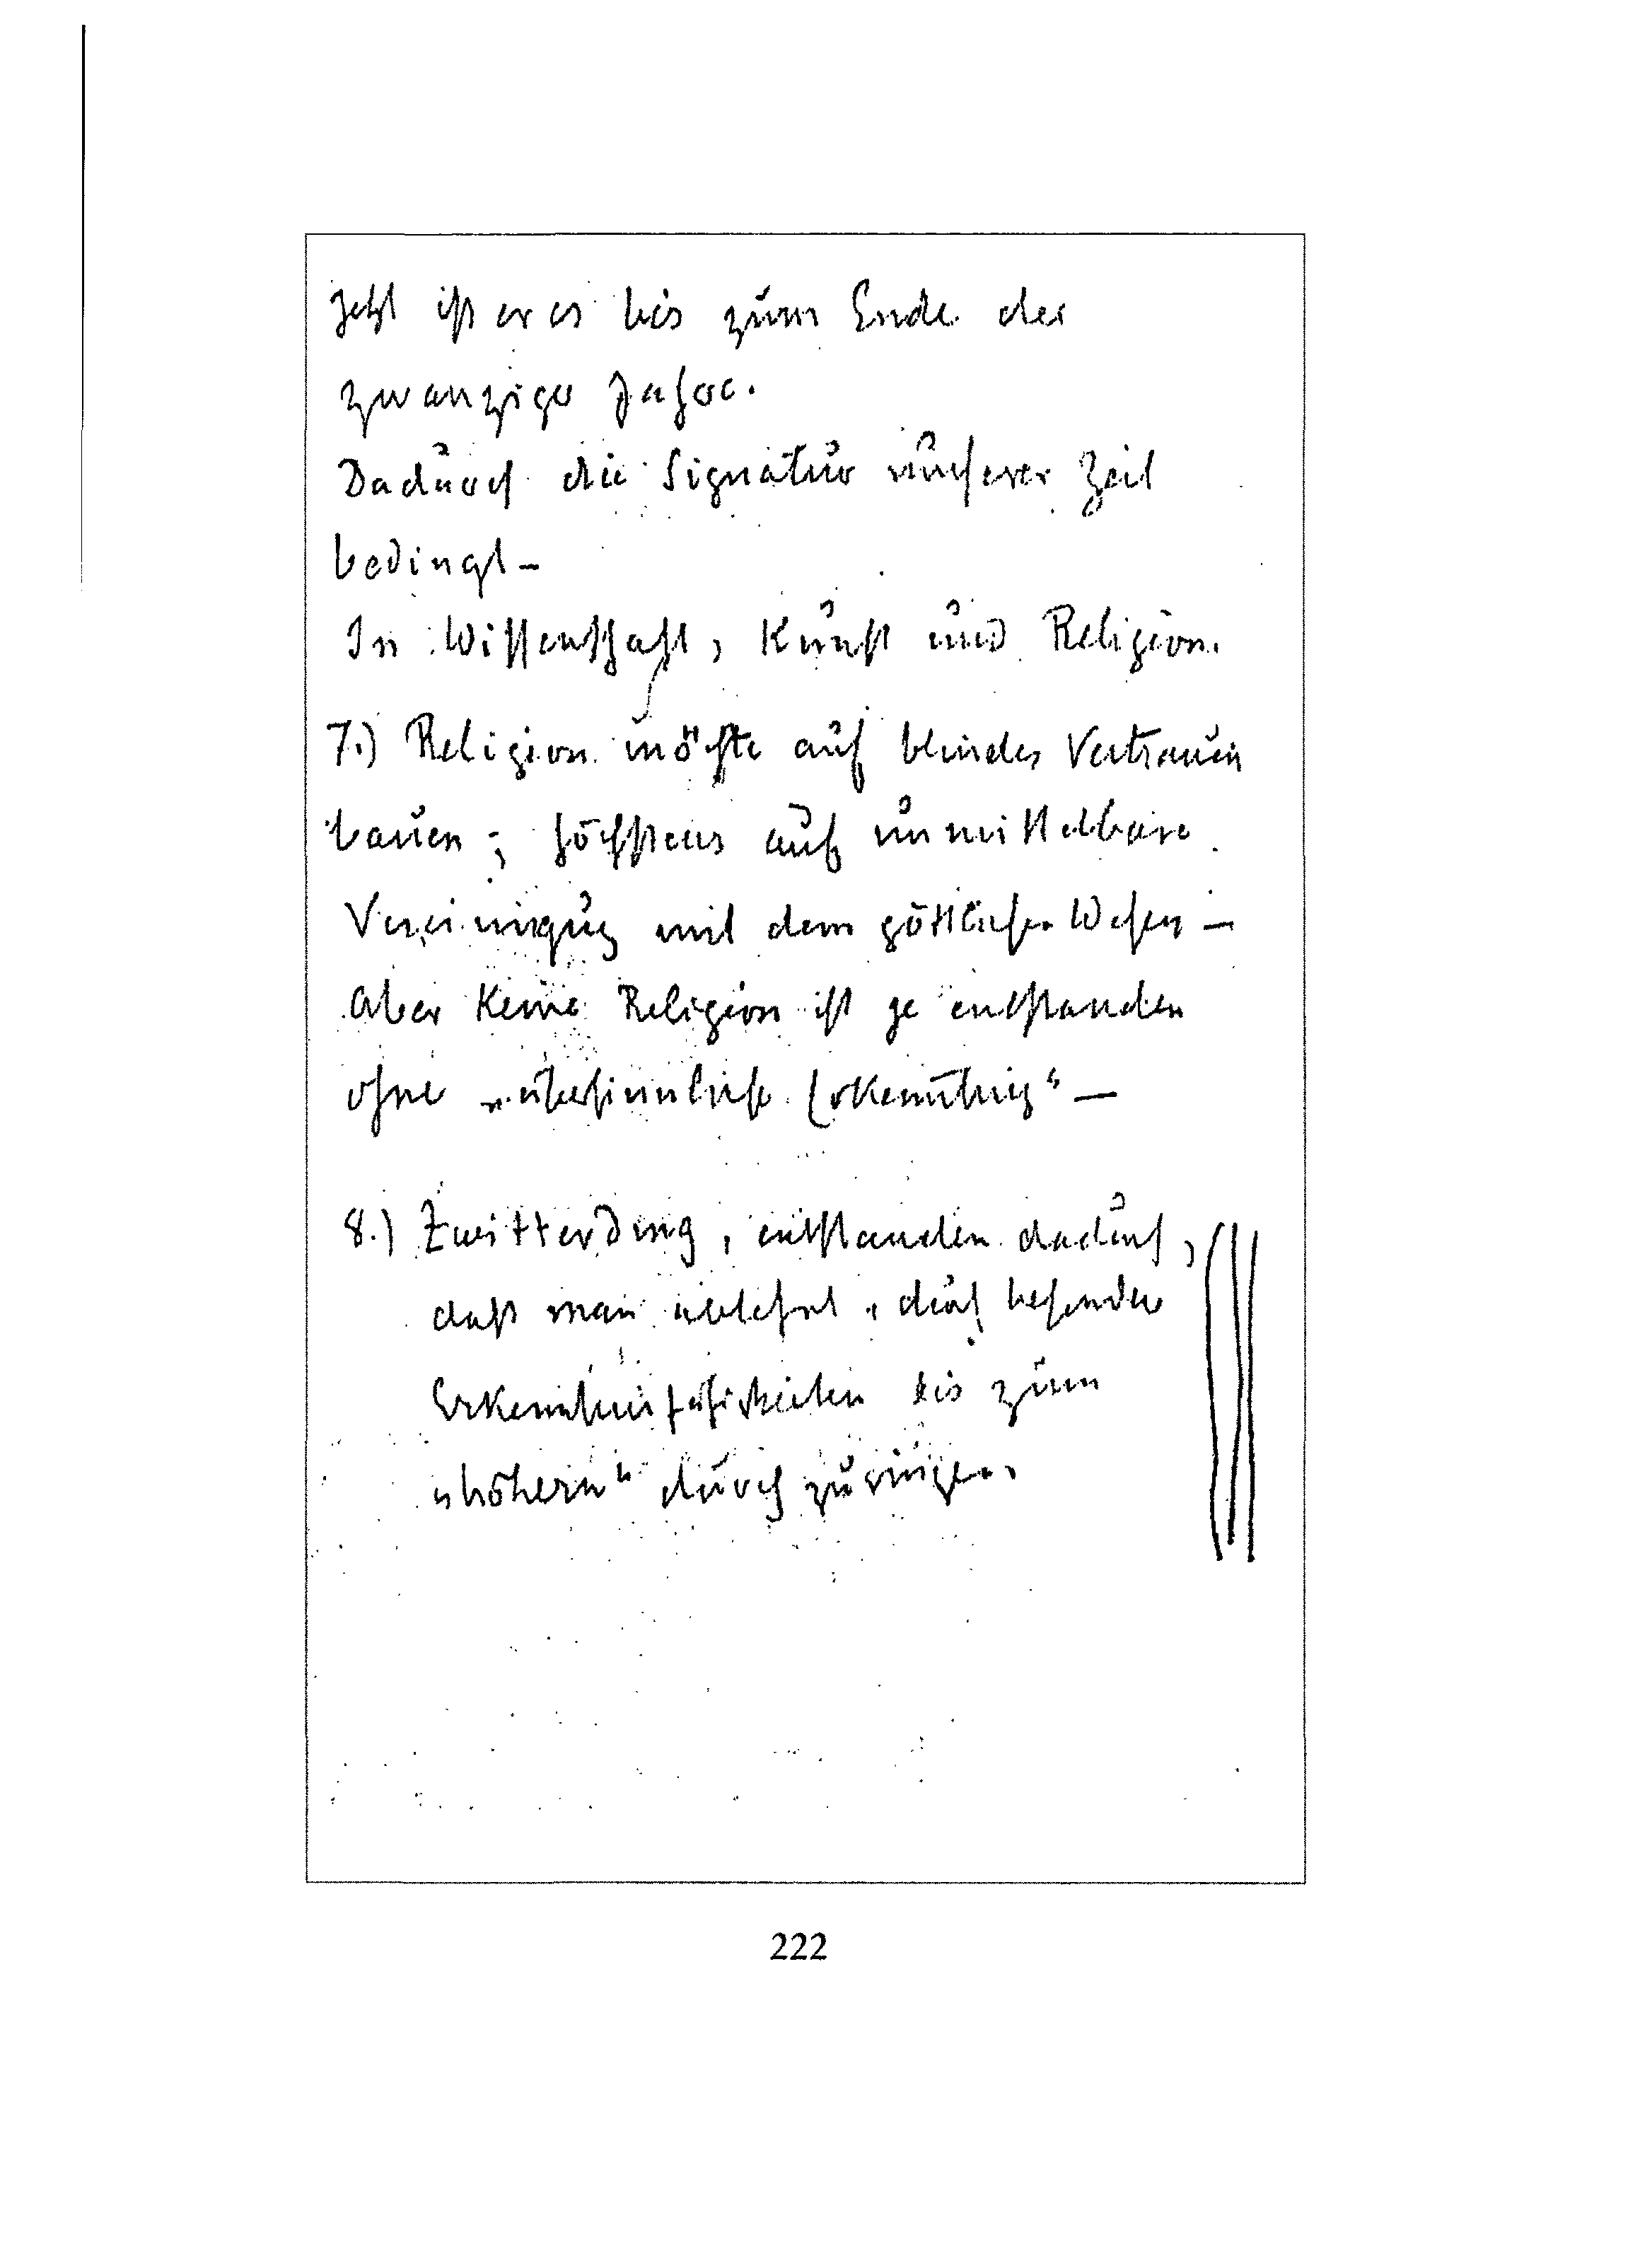 Jetzt ist er es bis zum Ende der
zwanziger Jahre.
Dadurch die Signatur unserer Zeit
bedingt –
In Wissenschaft, Kunst und Religion.
7.) Religion möchte auf blindes Vertrauen
bauen; höchstens auf unmittelbare
Vereinigung mit dem göttlichen Wesen –
Aber keine Religion ist je entstanden
ohne „übersinnliche Erkenntnis“ –
8.) Zwitterding, entstanden dadurch,
daß man ablehnt, durch besondere
Erkenntnisfähigkeiten bis zum
„höhern“ durchzuringen.
222